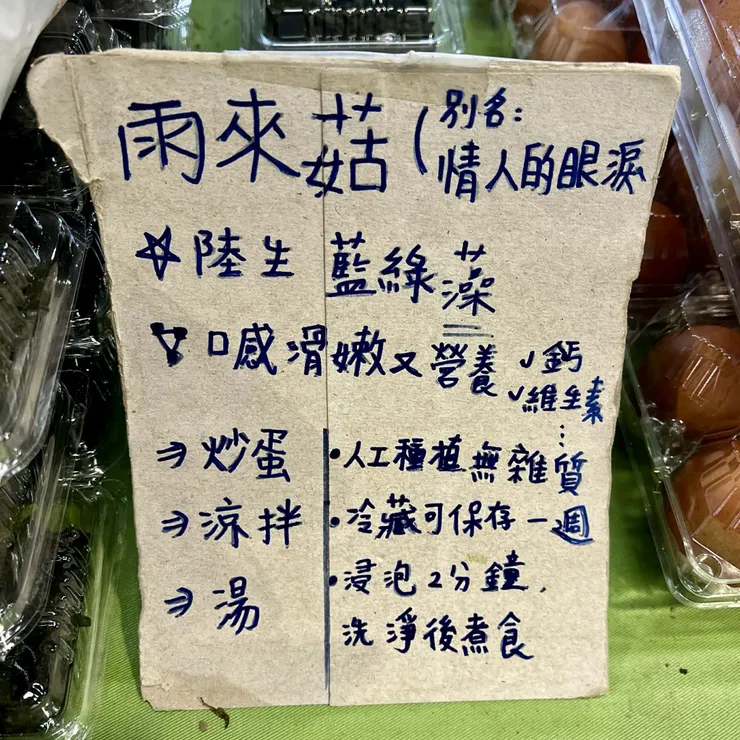 雨來菇(別名:
情人的眼淚
☆陸生 藍綠藻
口感滑嫩又營養 ✓鈣
✓維生素
⋮
⇒炒蛋
⇒涼拌
⇒湯
•人工種植無雜質
•冷藏可保存一週
•浸泡2分鐘,
洗淨後煮食